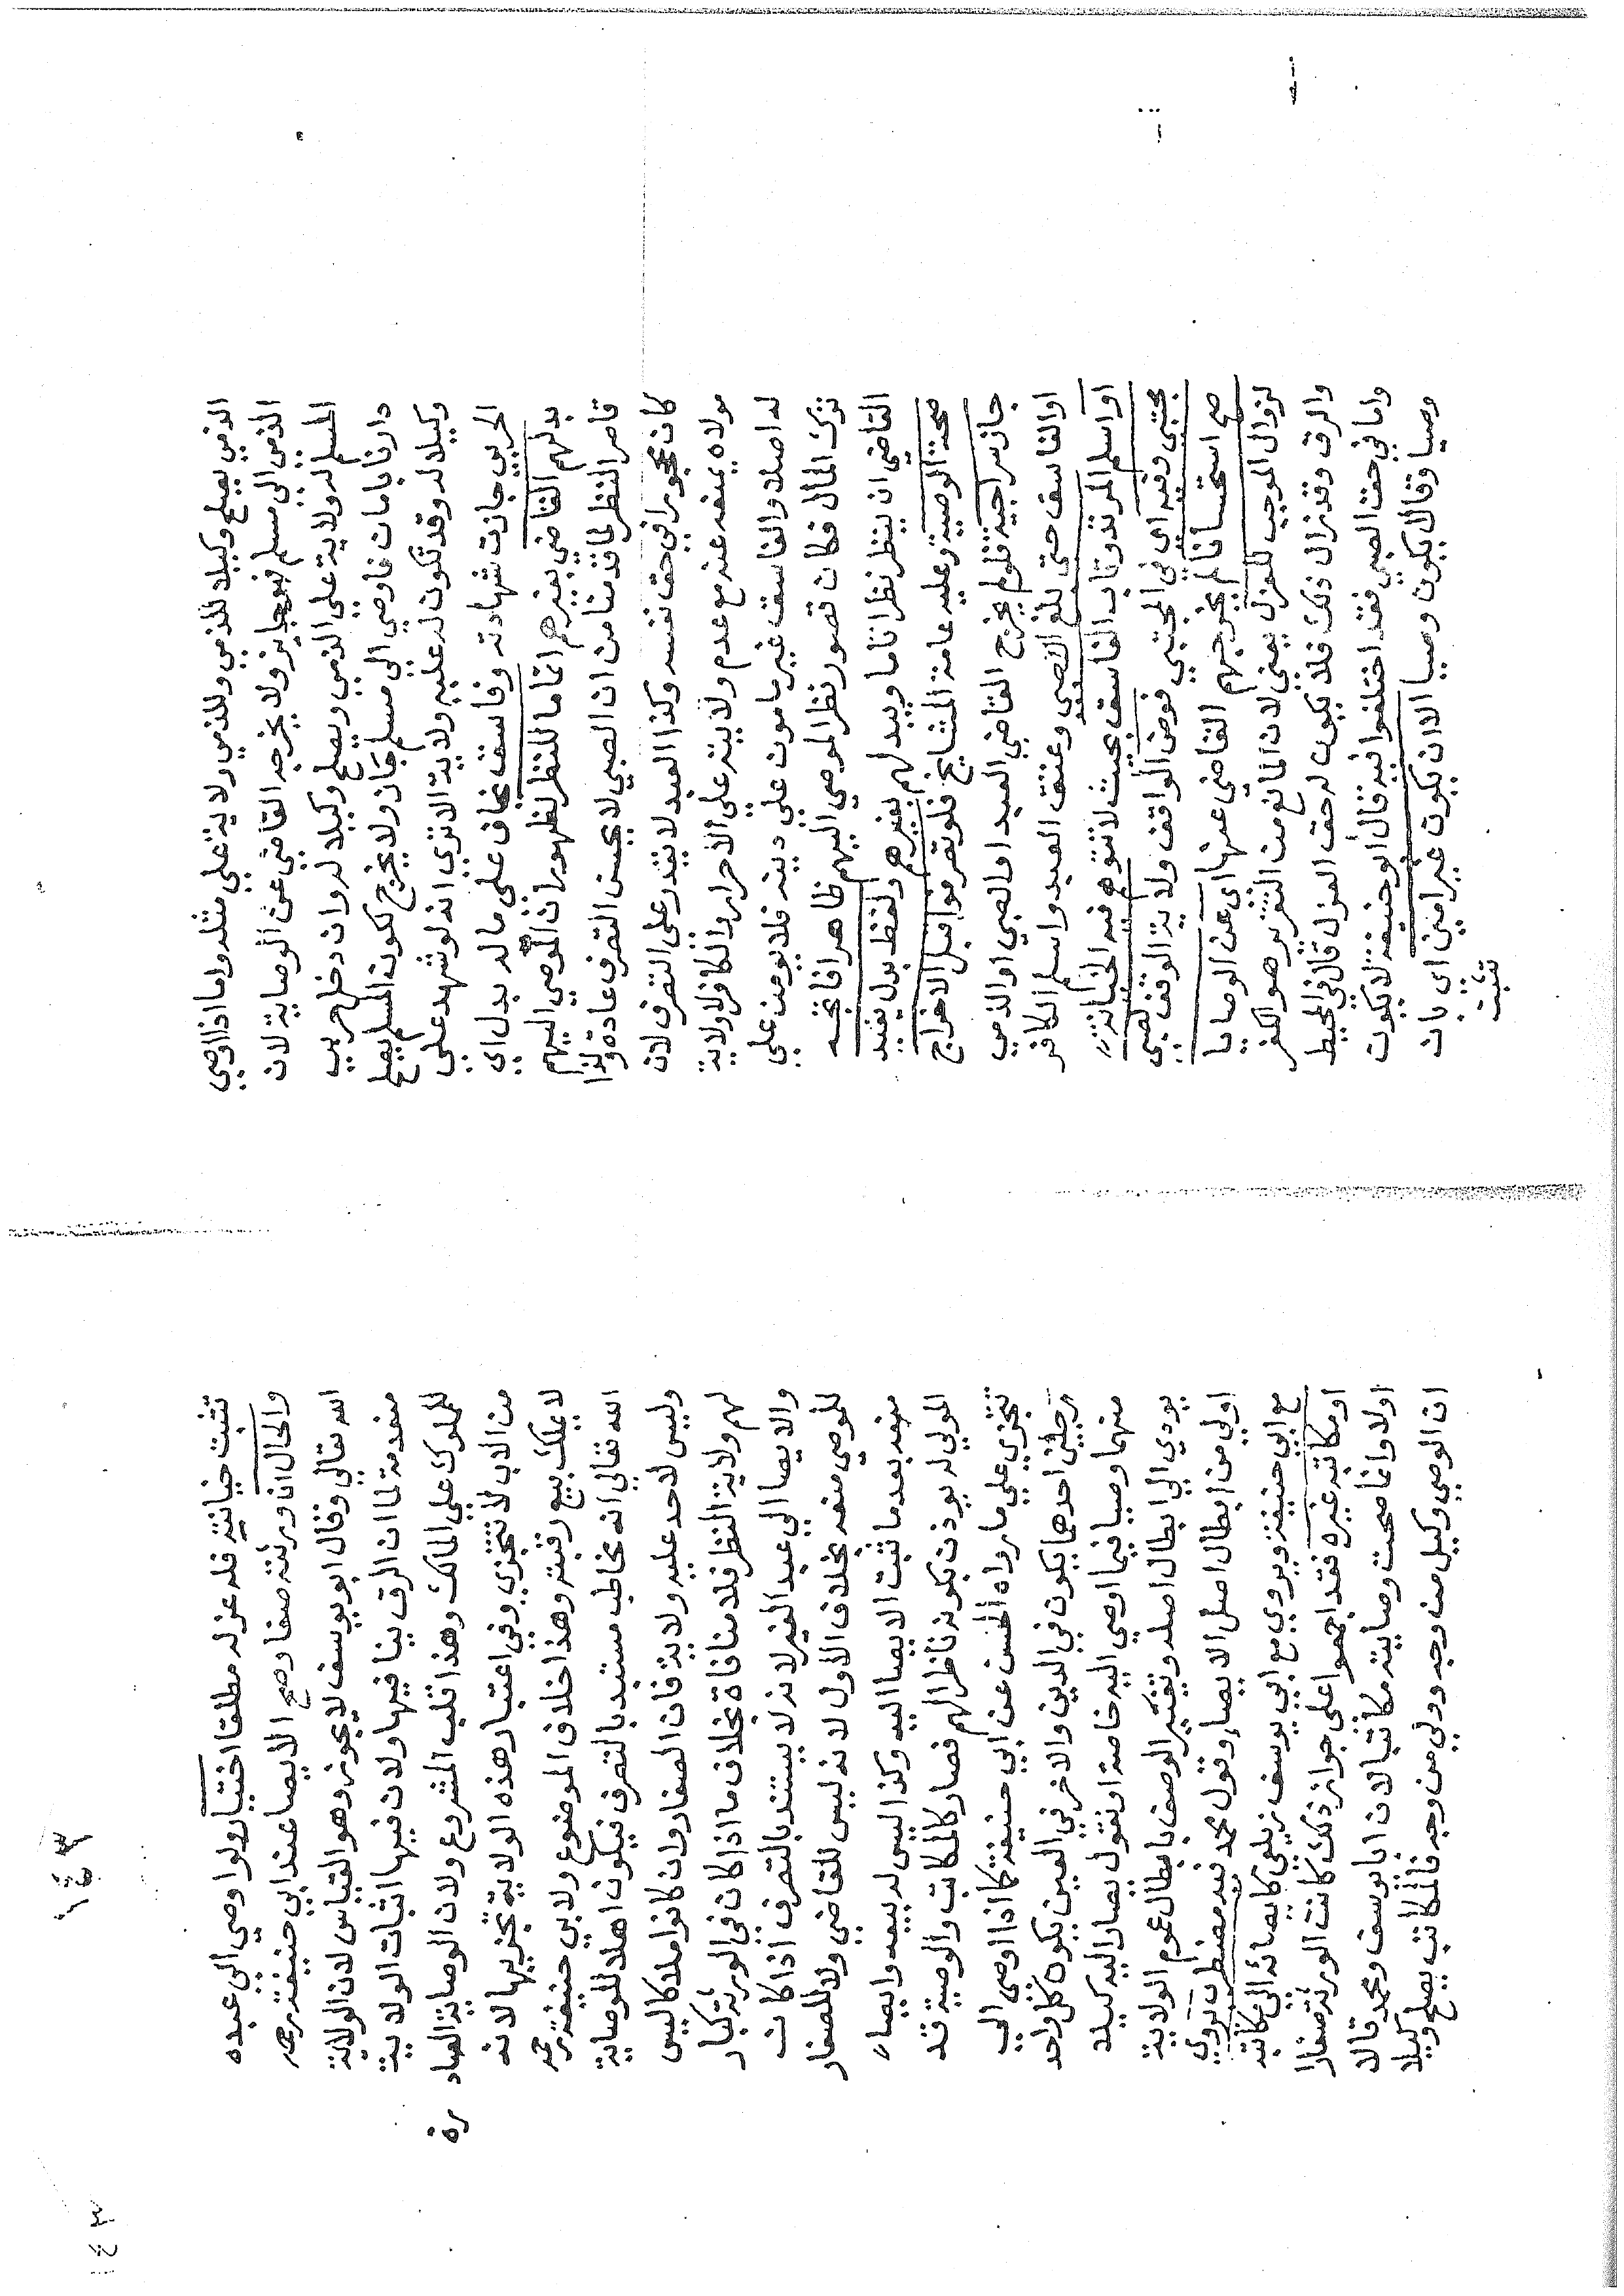 الذمي يصلح وكيلا للذمي وللذمي ولاية علي مثله واما اذا اوصي
الذمي الي مسلم فهو جايز ولا يخرجه القاضي عن الوصاية لان
المسلم له ولاية علي الذمي ويصلح وكيلا له وان دخل حربي
دارنا بامان فاوصي الي مسلم جاز ولا يخرج لكون المسلم يصلح
وكيلا له وقد تكون له عليه ولاية الا تري انه لو شهد علي
الحربي جازت شهادته وفاسق يخاف علي ماله بدل اي
بدلهم القاضي بغيرهم اتماما للنظر لظهور ان الموصي اليهم
قاصر النظر لما قدمنا من ان الصبي لا يحسن التصرف عادة ولذا
كان محجورا في حق نفسه وكذا العبد لا يقدر علي التصرف لان
مولاه يمنعه عنه مع عدم ولايته علي الاحرار والكافر لا ولاية
له اصلا والفاسق غير مامون علي دينه فلا يومن علي
تركة المال فكان قصور نظر الموصي اليهم ظاهرا فاتجه
القاضي ان ينظر نظرا تاما ويبدلهم بغيرهم ولفظ بدل يفيد
صحة الوصية وعليه عامة المشايخ فلو تصرفوا قبل الاخراج
جاز سراجية فلو لم يخرج القاضي العبد او الصبي او الذمي
او الفاسق حتي بلغ الصبي وعتق العبد واسلم الكافر
او اسلم المرتد وتاب الفاسق بحيث لا تتوهم فيه الخيانة
مجتبي وفيه اي في المجتبي فوض الواقف ولاية الوقف لصبي
صح استحسانا لم يخرجهم القاضي عنها اي عن الوصايا
لزوال الموجب للعزل يعني لان المانع من التقرير هو الكفر
والرق وقد زال ذلك فلا يكون له حق العزل قال في المحيط
واما في حق الصبي فقد اختلفوا فيه قال ابو حنيفة لا يكون
وصيا وقالا يكون وصيا الا ان يكون غير امين اي بان
تثبت
١٤٣
تثبت خيانته فله عزله مطلقا اختيار ولو اوصي الي عبده
والحال ان ورثته صغار صح الايصا عند ابي حنيفة رحمه
الله تعالي وقال ابو يوسف لا يجوز وهو القياس لان الولاية
منعدمة لما ان الرق ينافيها ولان فيها اثبات الولاية
للمملوك علي المالك وهذا قلب المشروع ولان الوصاية الصادرة
من الاب لا تتجزي وفي اعتبار هذه الولاية تجزيها لانه
لا يملك بيع رقبته وهذا خلاف الموضوع ولابي حنيفة رحمه
الله تعالي انه مخاطب مستبد بالتصرف فيكون اهلا للوصاية
وليس لاحد عليه ولاية فان الصغار وان كانوا ملاكا ليس
لهم ولاية النظر فلا منافاة بخلاف ما اذا كان في الورثة كبار
والايصا الي عبد الغير لانه لا يستبد بالتصرف اذا كان
للمولي منعه بخلاف الاول لانه ليس للقاضي ولا للصغار
منعه بعد ما ثبت الايصا اليه وكذا ليس له بيعه وايصاء
المولي له يوذن بكونه ناظرا لهم فصار كالمكاتب والوصية قد
تتجزي علي ما رواه الحسن عن ابي حنيفة كما اذا اوصي الي
رجلين احدهما يكون في الدين والاخر في العين يكون كل واحد
منهما وصيا فيما اوصي اليه خاصة او نقول يصار اليه كيلا
يودي الي ابطال اصله وتغيير الوصف بابطال عموم الولاية
اولي من ابطال اصل الايصاء وقول محمد فيه مضطرب يروي
مع ابي حنيفة ويروي مع ابي يوسف زيلعي كايصائه الي مكاتبه
او مكاتب غيره فقد اجمعوا علي جواز ذلك كانت الورثة صغارا
اولا وانما صحت وصاية مكاتب لان ابا يوسف ومحمد قالا
ان الوصي وكيل من وجه وولي من وجه فالمكاتب يصلح وكيلا
١٤٣